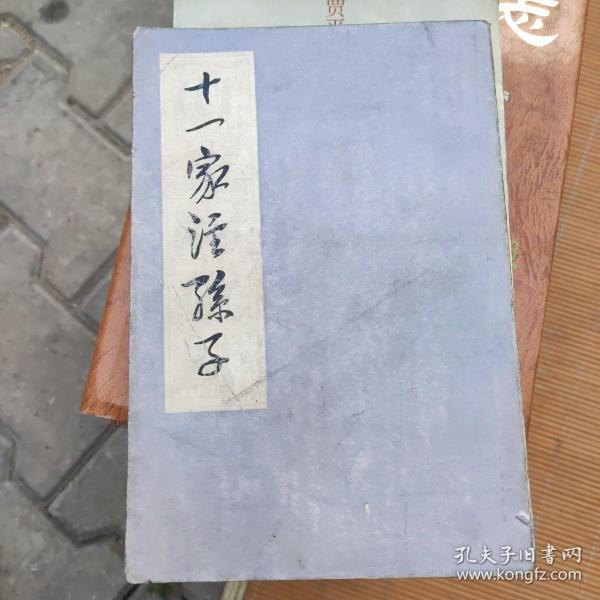 十一家注孫子
贾平
志
孔夫子旧书网
www.kongfz.com